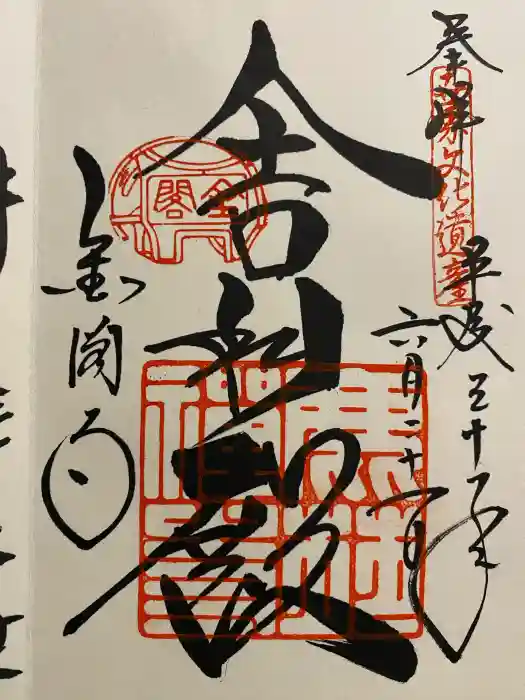 奉拝
世界文化遺産
平成三十年
六月二十一日
舎利殿
金閣
金閣寺